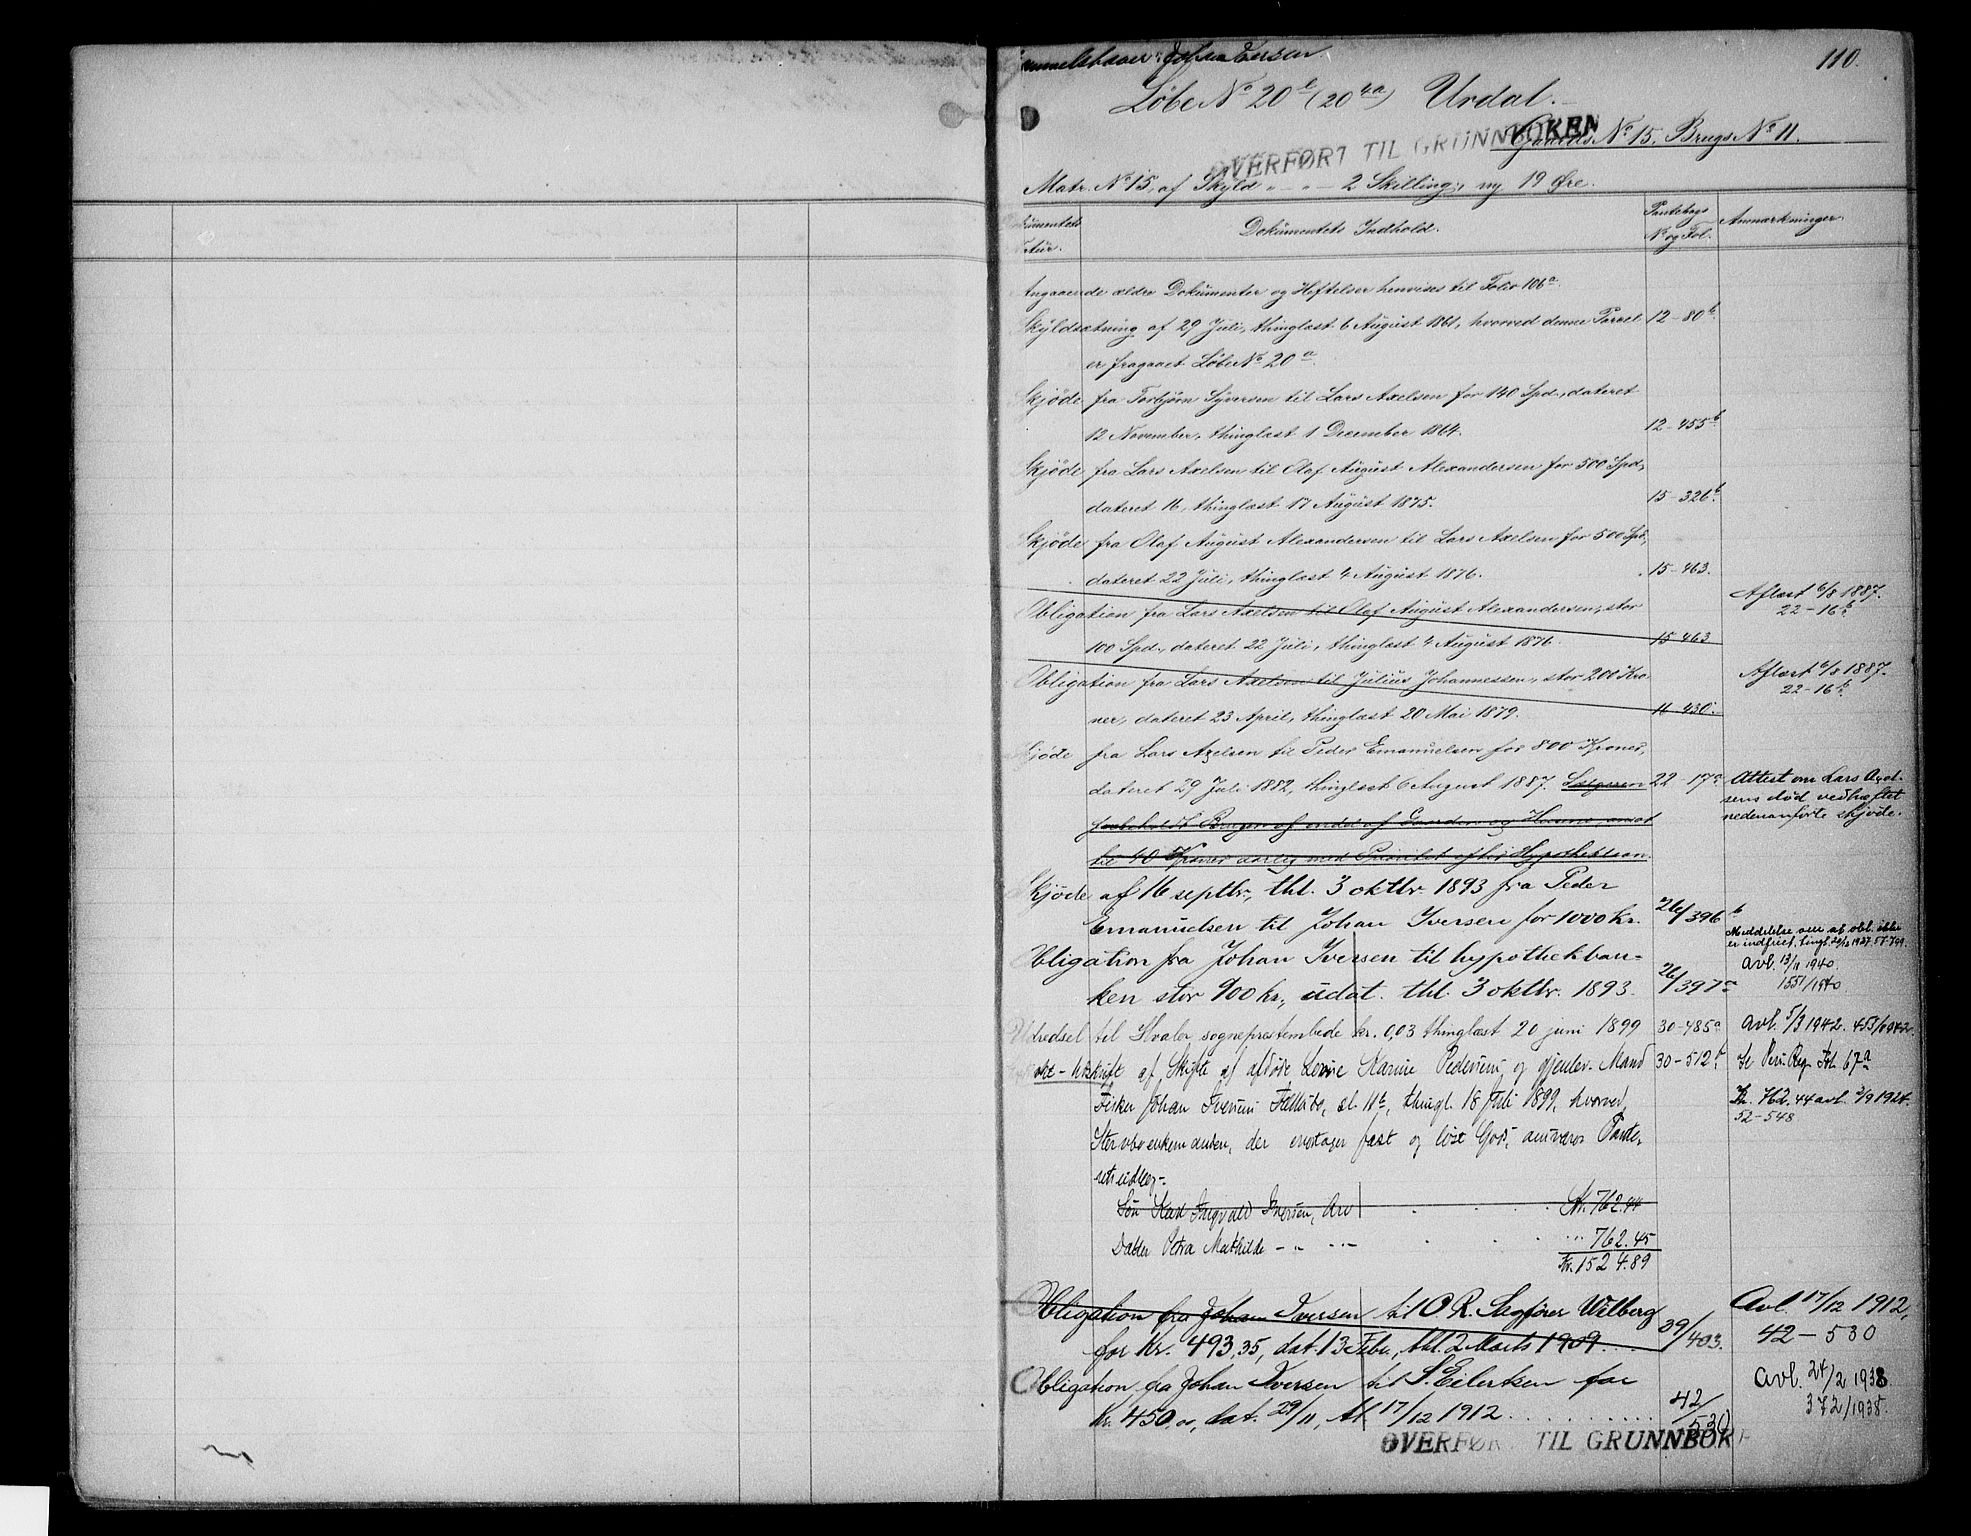 Johan Iversen
110.
Løbe No 20 b (20 4a) Urdal.
OVERFØRT TIL GRUNNBOKEN
Gaards No 15, Brugs No 11.
Matr. No 15, af Skyld " – " – 2 Skilling, ny 19 Øre.
Dokumentets Indhold.
Pantebogs
No og Fol.
Anmærkninger.
Angaaende ældre Dokumenter og Heftelser henvises til Folio 106 a
Skyldsætning af 29 Juli, thinglæst 6 August 1861, hvorved denne Parcel 12-80 b.
er fragaaet Løbe No 20 a.
Skjøde fra Torbjørn Syversen til Lars Axelsen for 140 Spd., dateret
12 November, thinglæst 1 December 1864. 12-455 b
Skjøde fra Lars Axelsen til Olaf August Alexandersen for 500 Spd,
dateret 16, thinglæst 17 August 1875. 15-326 b.
Skjøde fra Olaf August Alexandersen til Lars Axelsen for 500 Spd,
dateret 22 Juli, thinglæst 4 August 1876. 15-463.
Obligation fra Lars Axelsen til Olaf August Alexandersen, stor Aflæst 6/8 1887.
22-16 b.
100 Spd., dateret 22 Juli, thinglæst 4 August 1876. 15-463
Obligation fra Lars Axelsen til Julius Johannessen, stor 200 Kro Aflæst 6/8 1887.
22-16 b.
ner, dateret 23 April, thinglæst 20 Mai 1879. 430.
Skjøde fra Lars Axelsen til Peder Emanuelsen for 800 Kroner,
dateret 29 Juli 1882, thinglæst 6 August 1887. Sælgeren 22-17 a Attest om Lars Axel-
sens død vedhæftet
nedenanførte skjøde.
forbeholdt Brugen af endel af Gaarden og Husene, ansat
til 40 Kroner aarlig med Prioritet efter Hypotheklaan.
Skjøde af 16 septbr., thl. 3 oktbr. 1893 fra Peder
Emanuelsen til Johan Iversen for 1000 kr. 26/396 b
Meddelelse om at obl. ikke
er indfriet, tingl. 1927 57-799.
Obligation fra Johan Iversen til hypothekban-
Avl. 13/11 1940.
1551/1940
ken stor 900 kr., udat. thl. 3 oktbr. 1893. 26/397 a
Udredsel til Hvaler sogneprestembede kr. 0,03 thinglæst 20 juni 1899 30-485 a Avl. 5/3 1942. 453/1942
Ekst-Utskrift af Skifte af afdøde Karine Pedersen og gjenlev. Mand 30-512 b. Se Pers. Reg. Fol. 67 a
Fisker Johan Iversen thingl. 18 Juli 1899, hvorved Kr. 762.44 avl. 2/9 1924.
52-548
Stervboenkemanden, der overtager fast og løst Gods, ansvarer Pante-
retsudlæg:
Søn Karl Ingvald Iversen, Arv Kr. 762.44
Datter Petra Mathilde – " – " – 762.45
Kr. 1524.89
Obligation fra Johan Iversen til O.R. Sagfører Wilberg Avl. 17/12 1912,
for Kr. 493,35, dat. 13 Febr., thl. 2 Marts 1909. 39/403. 42-530
Obligation fra Johan Iversen til S. Eilertsen for Avl. 24/2 1938
Kr. 450,00, dat. 29/11, thl. 17/12 1912 42/530 372/1938.
OVERFØRT TIL GRUNNBOKEN